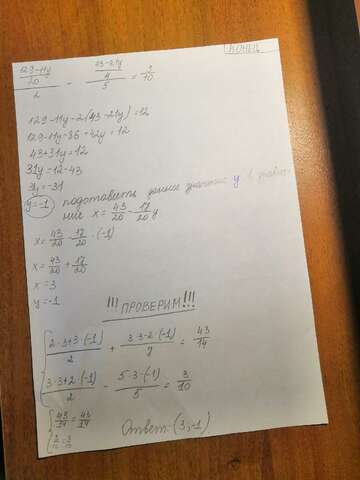 КОНЕЦ
(129-11y/20)/2 - (43-21y/4)/5 = 3/10
129-11y-2(43-21y)=12
129-11y-86+42y=12
43+31y=12
31y=12-43
31y=-31
y=-1 подставить данное значение y в
x=43/20-17/20 y
x=43/20-17/20·(-1)
x=43/20+17/20
x=3
y=-1
!!! ПРОВЕРИМ !!!
{ (2·3+3·(-1))/2 + (3·3-2·(-1))/7 = 43/14
{ (3·3+2·(-1))/2 - (5·3·(-1))/5 = 3/10
{ 43/14=43/14
Ответ: (3,-1)